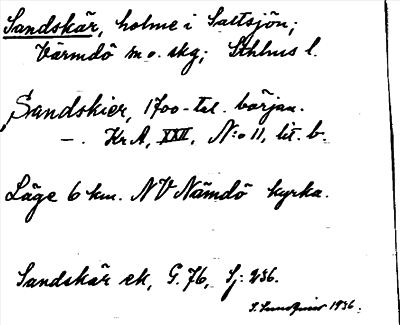 Sandskär, holme i Saltsjön;
Värmdö m o. skg; Sthlms l.
Sandskier, 1700-tal. början.
—. Kr A, XXII, N:o 11, lit. b.
Läge 6 km. NV Nämdö kyrka.
Sandskär ek, G. 76, Sj: 236.
1936.